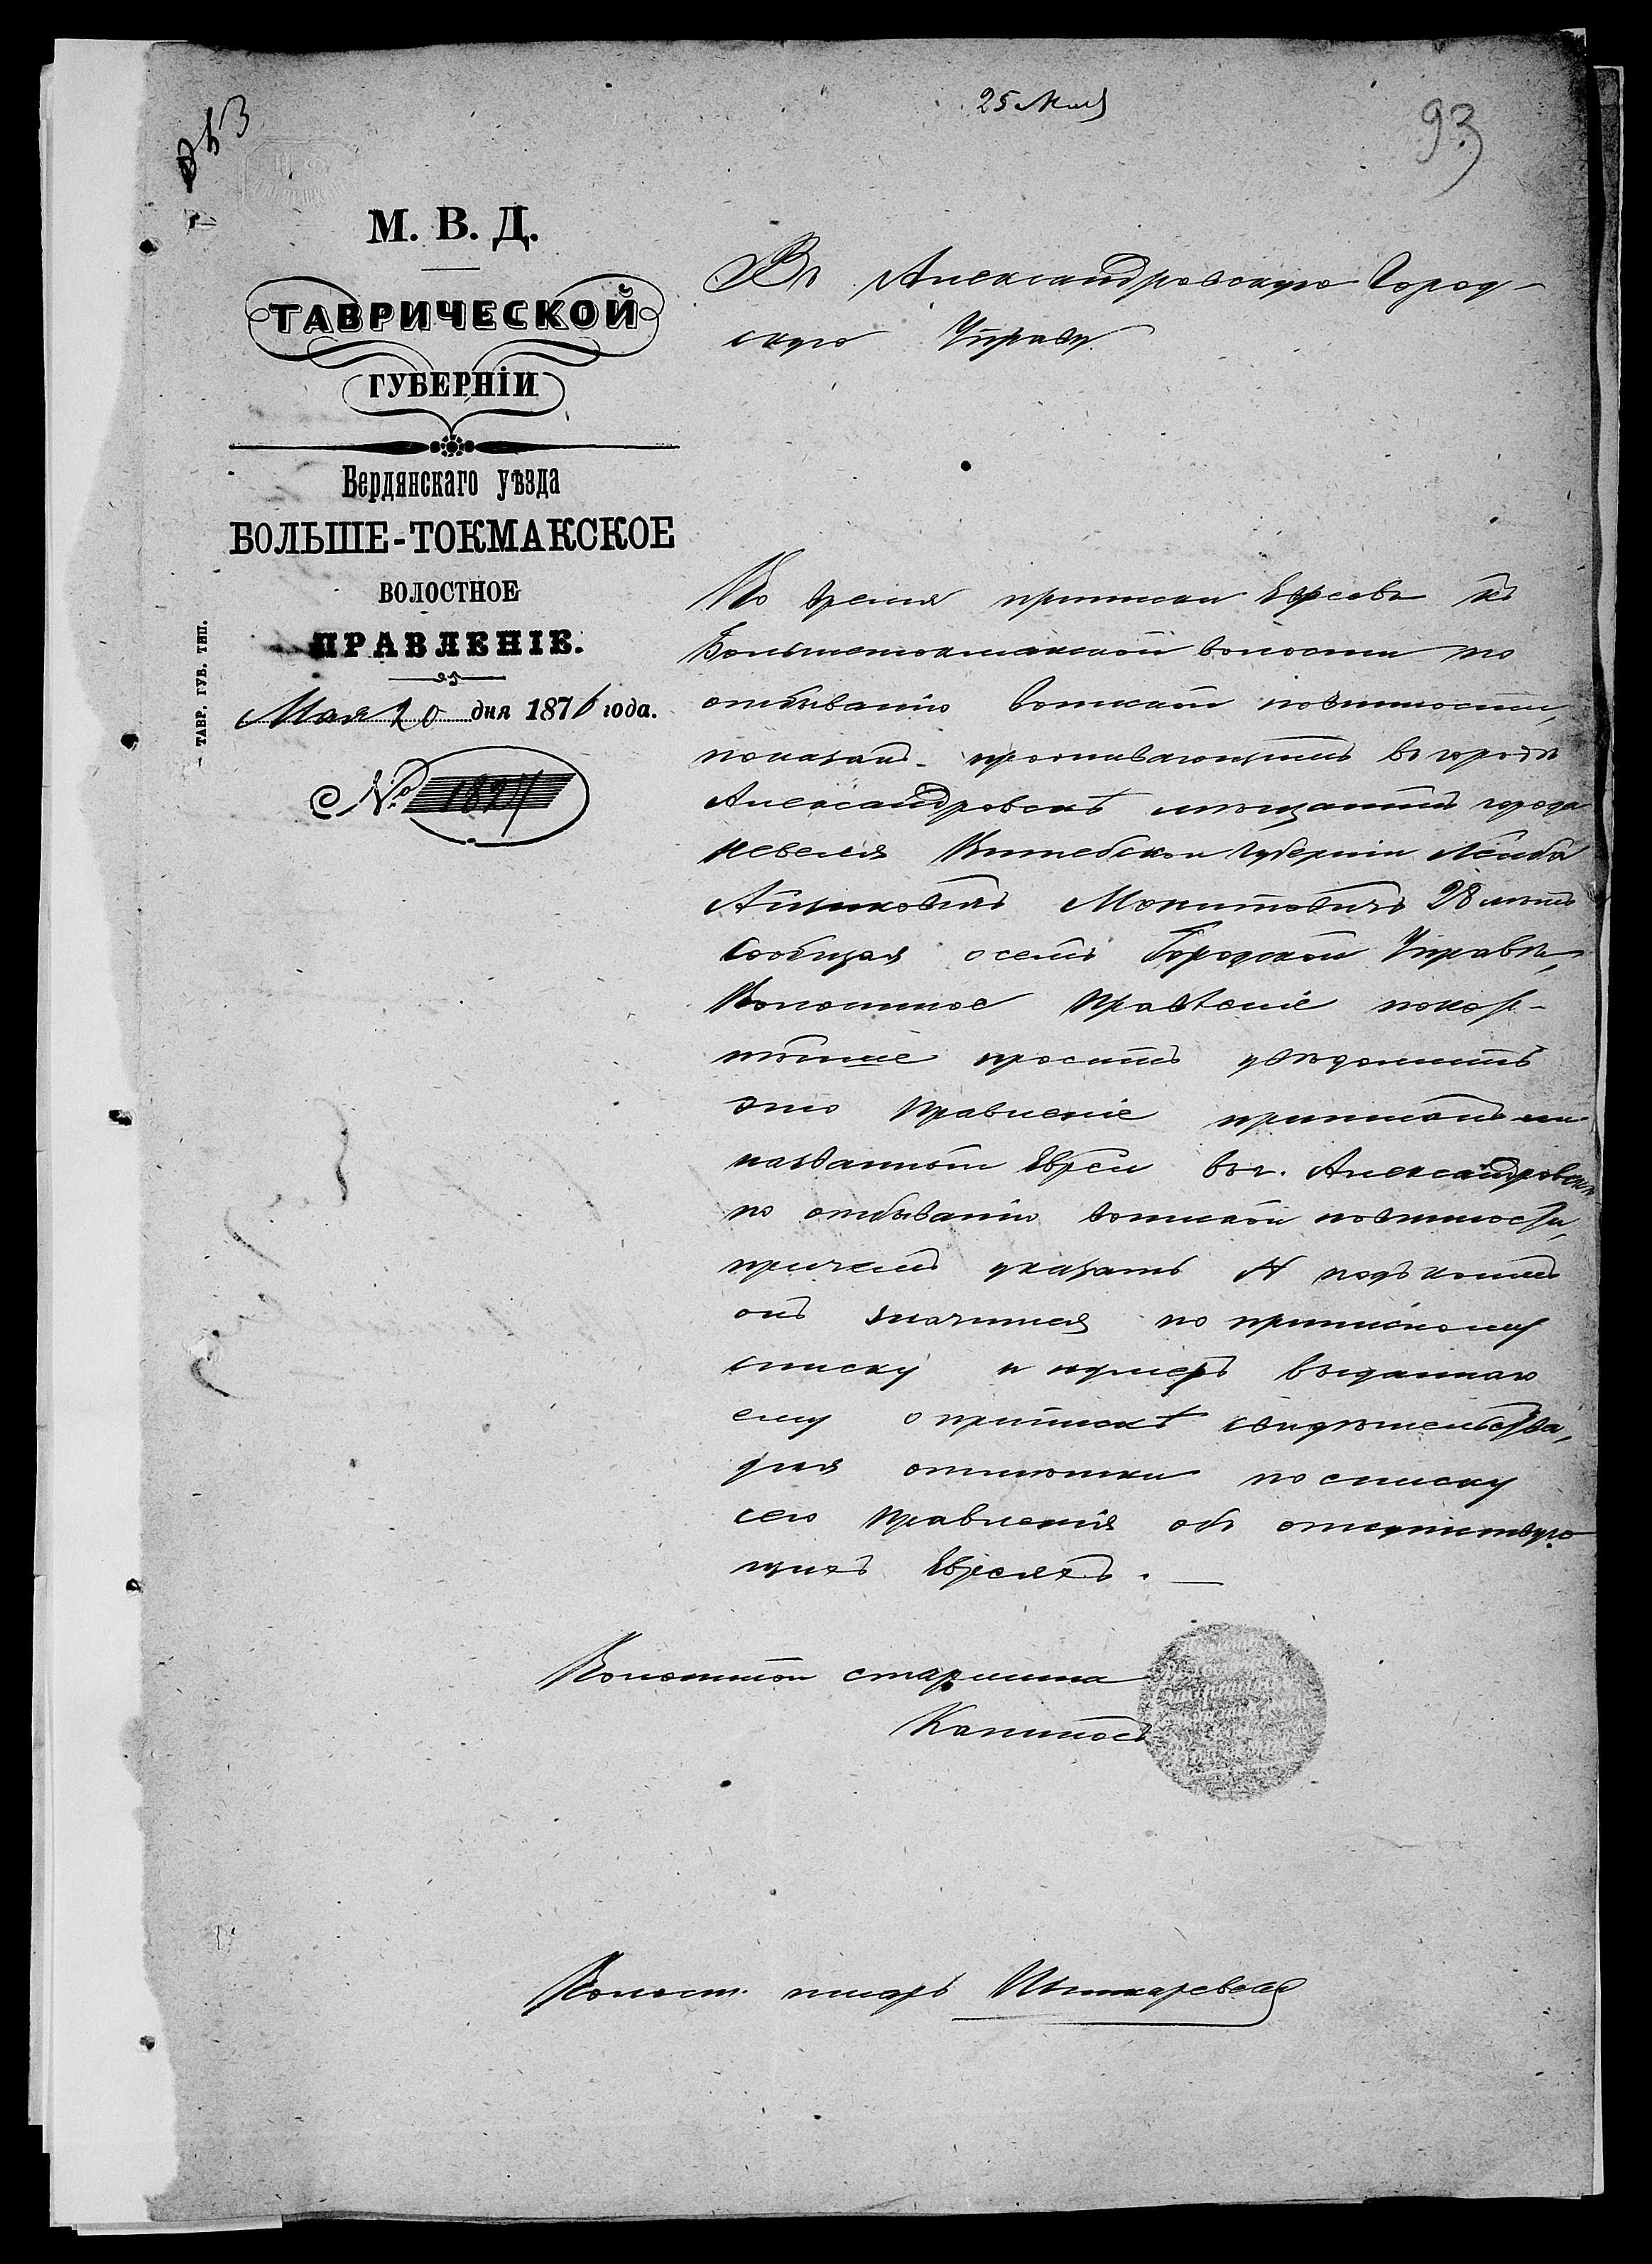 25 Мая
93
М. В. Д.
ТАВРИЧЕСКОЙ
ГУБЕРНІИ
Бердянскаго уѣзда
БОЛЬШЕ-ТОКМАКСКОЕ
ВОЛОСТНОЕ
ПРАВЛЕНІЕ.
Мая 20 дня 1876 года.
№ 1827
— ТАВР. ГУБ. ТИП.
Въ Александровскую Город-
скую Управу
Во время приписки Евреевъ къ
Большетокмакской волости по
отбыванію воинской повинности,
показанъ проживающимъ въ городѣ
Александровскѣ мѣщанинъ города
Невеля Витебской губерніи Лейба
Айзиковичъ 28 лѣтъ
Сообщая о семъ Городской Управѣ,
Волостное Правленіе покор-
нѣйше проситъ увѣдомить
это Правленіе приписанъ ли
названный Еврей въ г. Александровскѣ
по отбыванію воинской повинности,
причемъ указать № подъ коимъ
онъ значится по приписному
списку и нумеръ выданнаго
ему о припискѣ свидѣтельства,
для отмѣтки по списку
сего Правленія объ отсутствую
щихъ Евреяхъ. —
Волостной старшина
Волост. писарь